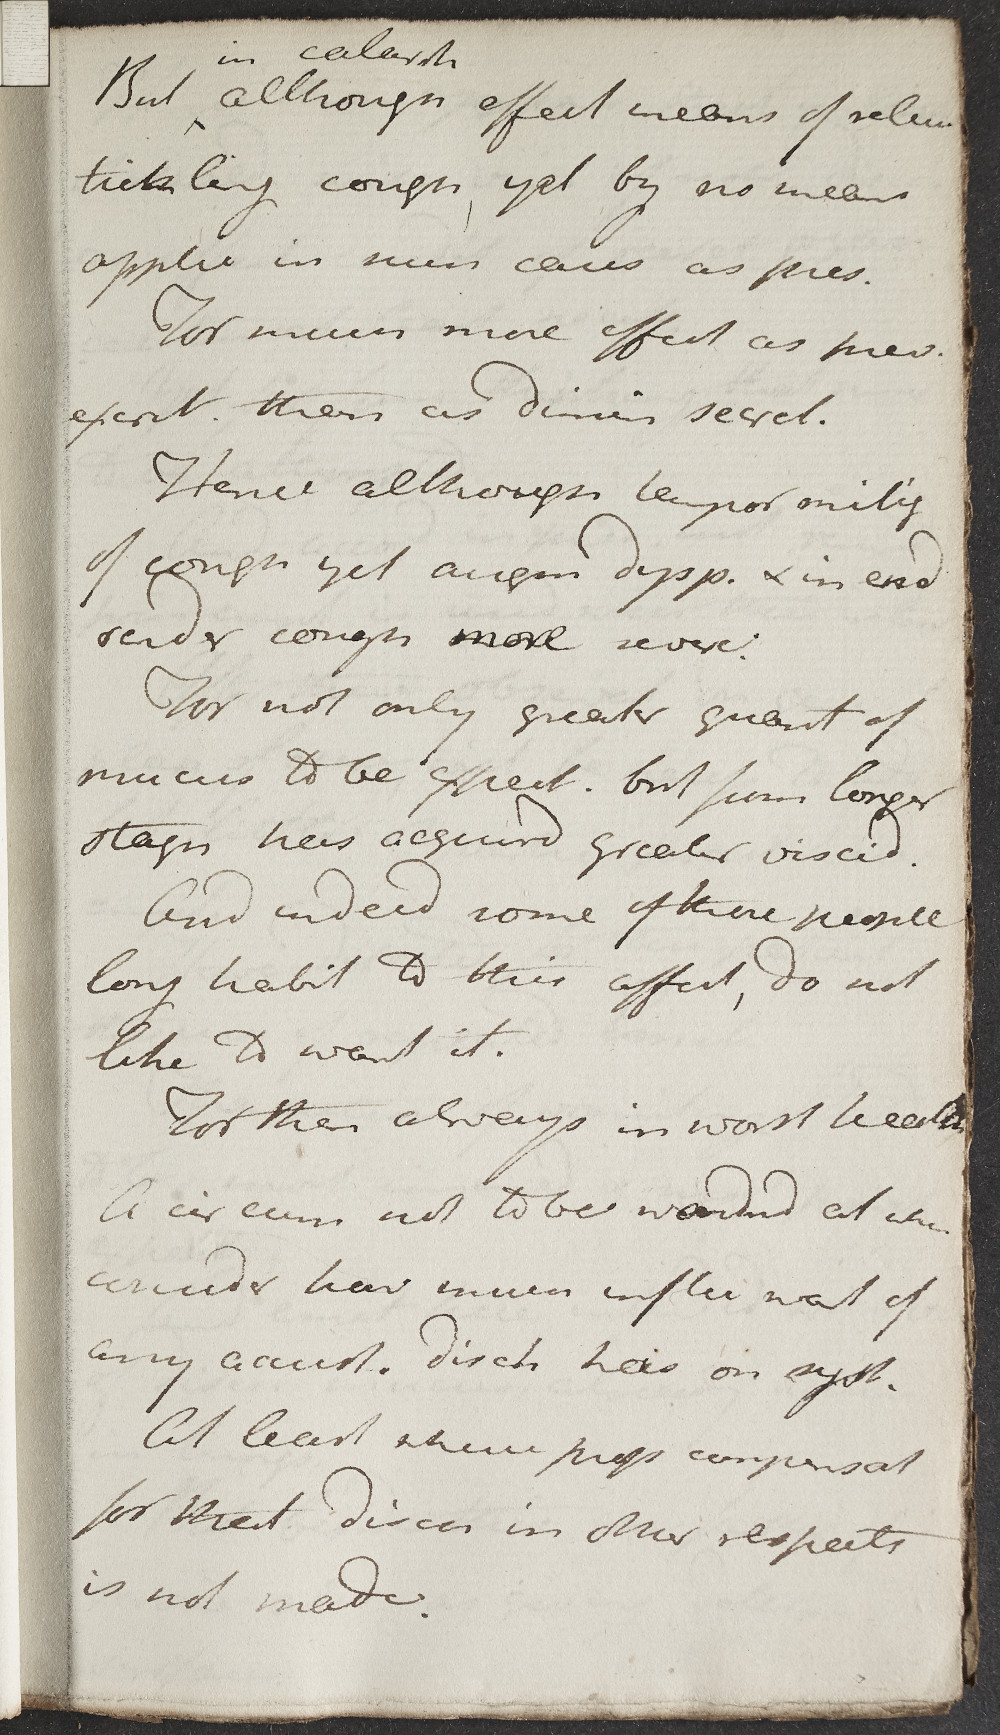 in catarrh
But although effect means of reliev
tickling cough, yet by no means
applic in such cases as pres.
For much more effect as prev.
exerit. than as dimin secret.
Hence although tempor mitig
of cough yet augm dysp. & in end
render cough more severe.
For not only greater quant of
mucus to be expect. but from longer
stagn has acquird greater viscid.
And indeed some of these people
long habit to this affect, do not
like to want it.
For then always in worst health
A circum not to be wondrd at when
consider how much influ want of
any accust. disch has on syst.
At least where prop compensat
for that disch in other respects
is not made.